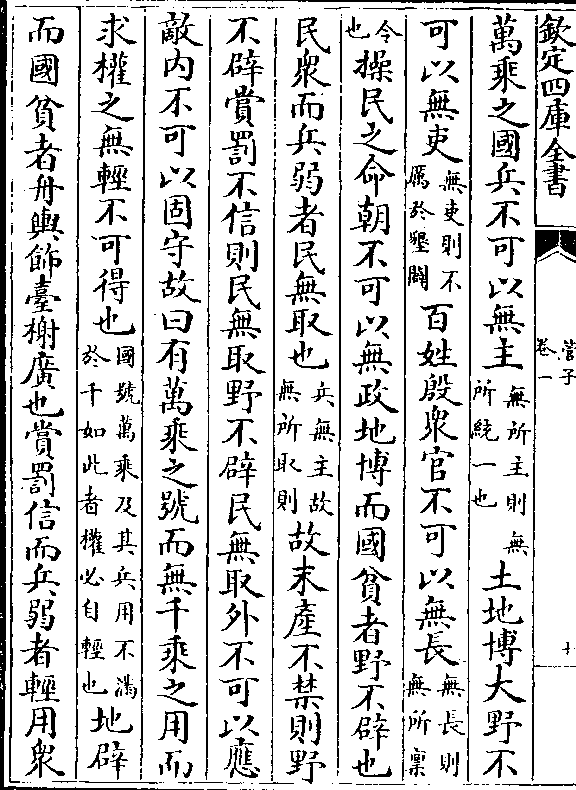 欽定四庫全書
管子
卷一
萬乗之國兵不可以無主無所主則無所統一也土地博大野不
可以無吏無吏則不屬於墾闢百姓殷衆官不可以無長無長則無所禀
令也操民之命朝不可以無政地博而國貧者野不辟也
民衆而兵弱者民無取也兵無主故無所取則故末產不禁則野
不辟賞罰不信則民無取野不辟民無取外不可以應
敵内不可以固守故曰有萬乗之號而無千乗之用而
求權之無輕不可得也國號萬乗及其兵用不滿於千如此者權必自輕也地辟
而國貧者舟輿飾臺榭廣也賞罰信而兵弱者輕用衆